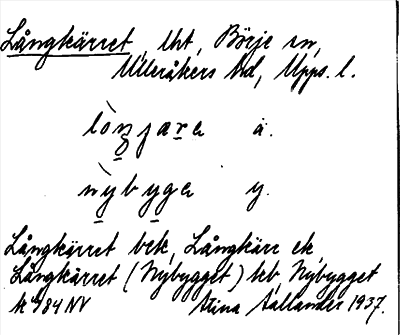 Långkärret, lht, Börje sn,
Ulleråkers hd, Upps. l.
lòŋjara ä.
nỳbyga y.
Långkärret bek, Långkärr ek,
Långkärret (Nybygget) teb, Nybygget
k 984 NV Stina Sallander 1937.